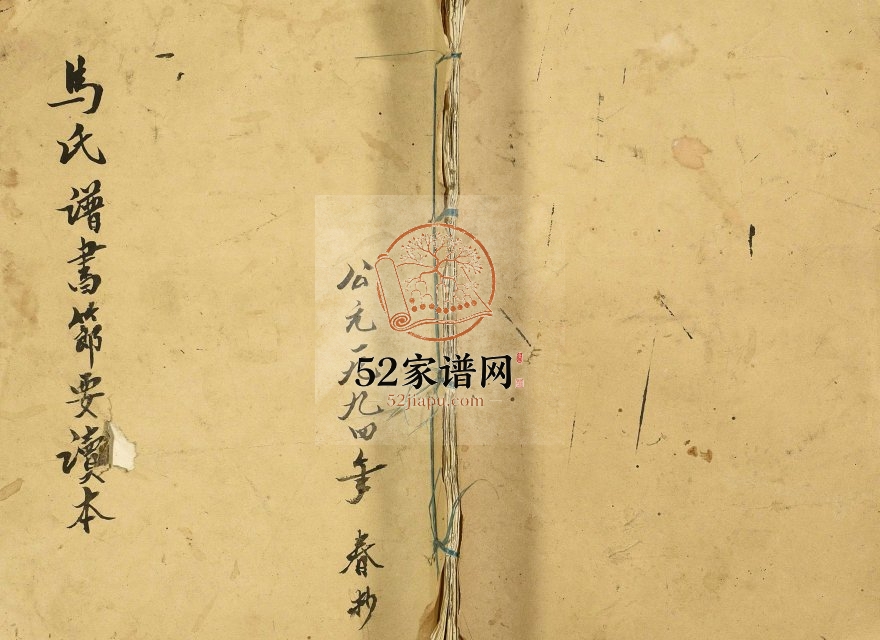 馬氏譜書節要讀本
公元一九九四年 春抄
52家谱网
52jiapu.com